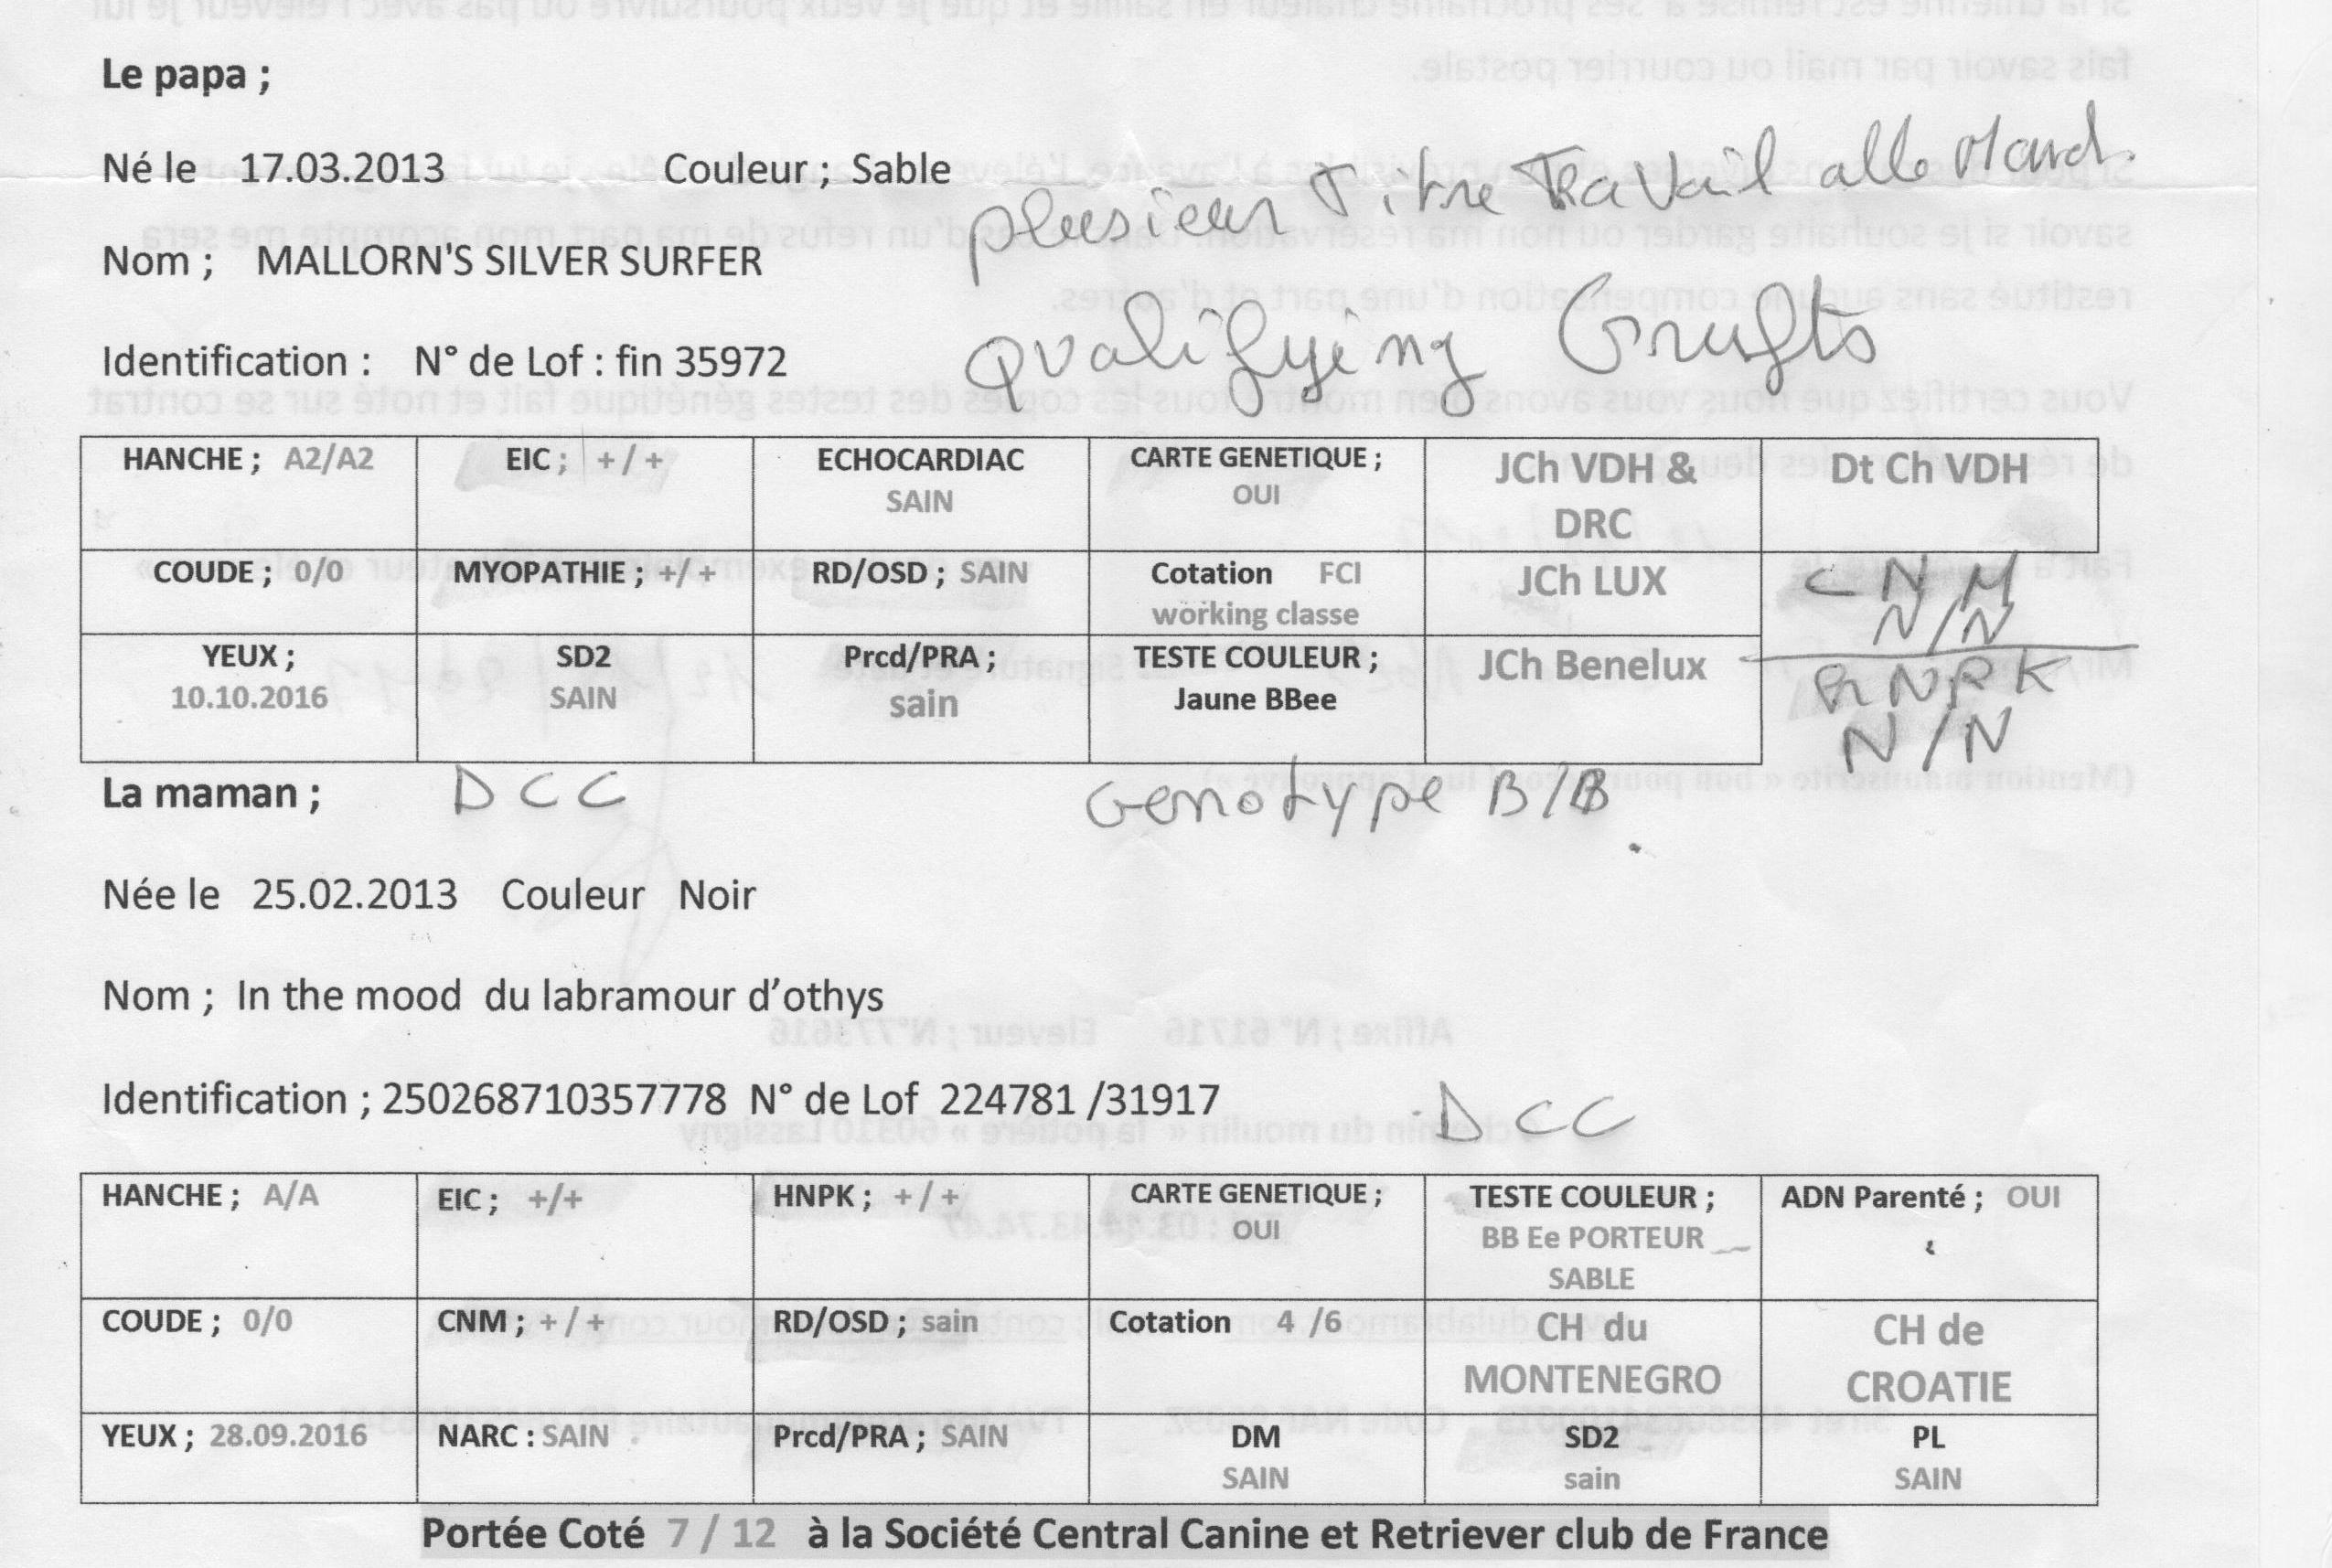 Le papa ;
Né le 17.03.2013 Couleur ; Sable
plusieur Titre Travail alleMand
Nom ; MALLORN'S SILVER SURFER
Identification : N° de Lof : fin 35972
Qualifying Crufts
HANCHE ; A2/A2
EIC ; +/+
ECHOCARDIAC
SAIN
CARTE GENETIQUE ;
OUI
JCh VDH &
DRC
Dt Ch VDH
COUDE ; 0/0
MYOPATHIE ; +/+
RD/OSD ; SAIN
Cotation FCI
working classe
JCh LUX
CNM
N/N
YEUX ;
10.10.2016
SD2
SAIN
Prcd/PRA ;
sain
TESTE COULEUR ;
Jaune BBee
JCh Benelux
HNPK
N/N
La maman ;
DCC
Genotype B/B
Née le 25.02.2013 Couleur Noir
Nom ; In the mood du labramour d'othys
Identification ; 250268710357778 N° de Lof 224781 /31917
DCC
HANCHE ; A/A
EIC ; +/+
HNPK ; +/+
CARTE GENETIQUE ;
OUI
TESTE COULEUR ;
BB Ee PORTEUR
SABLE
ADN Parenté ; OUI
COUDE ; 0/0
CNM ; +/+
RD/OSD ; sain
Cotation 4 /6
CH du
MONTENEGRO
CH de
CROATIE
YEUX ; 28.09.2016
NARC : SAIN
Prcd/PRA ; SAIN
DM
SAIN
SD2
sain
PL
SAIN
Portée Coté 7 / 12 à la Société Central Canine et Retriever club de France